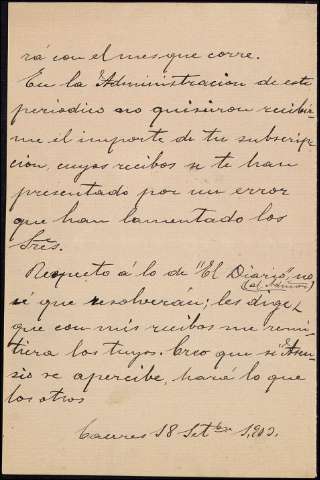 rá con el mes que corre.
En la Administracion de este
periodico no quisieron recibir-
me el importe de tu subscrip-
cion, cuyos recibos se te han
presentado por un error
que han lamentado los
Sres.
Respecto á lo de "El Diario", no
(al Admor)
sé que resolverán; les dige
que con mis recibos me remi-
tiera los tuyos. Creo que si
se apercibe, hará lo que
los otros
18 Setbre